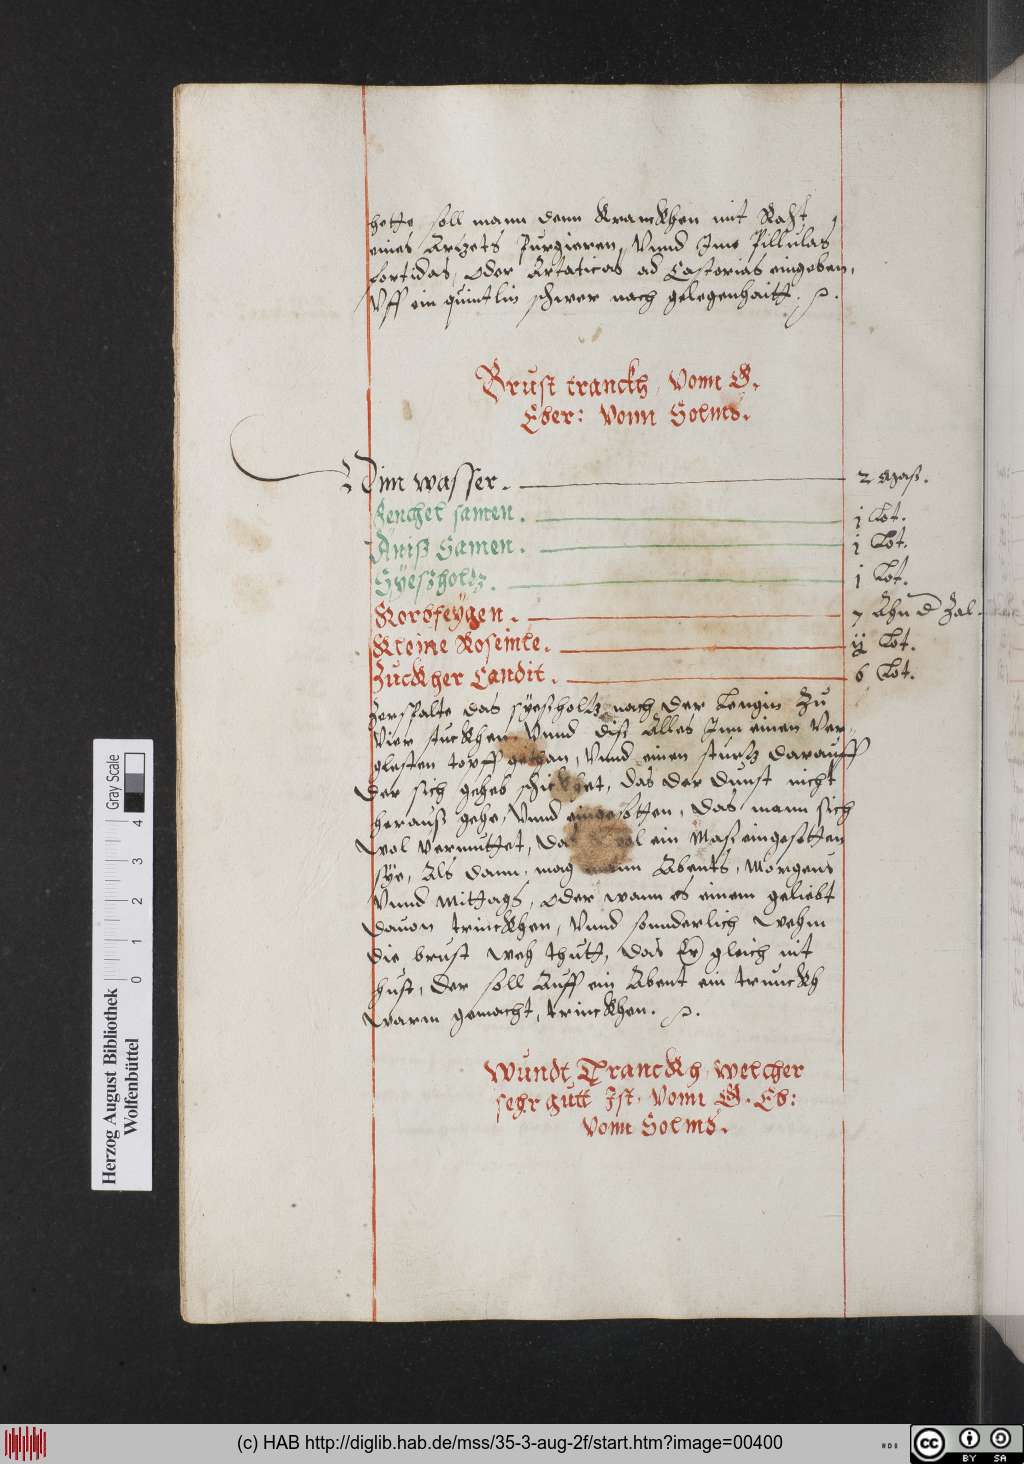 hette, soll mann denn Kranckhen mit Raht
eines Artzets Purgieren, Vnnd Ime Pillulas
foetidas, oder Artaticas ad Castorias eingeben,
Vff ein quintlin schwer nach gelegenhaitt.
Brust tranckh, vonn G.
Eber: vonn Solms.
Nim wasser. 2 Maß.
Fenchel samen. j Lot.
Aniß Samen. j Lot.
Süeßholtz. j Lot.
Korbfeygen. 7 Ahn d Zal.
Kleine Roseinle. ij Lot.
Zuckher Candit. 6 Lot.
Zerspalte das süeßholtz nach der Lengin Zu
Vier stuckhen, Vnnd diß Alles Inn einen Ver-
glesten topff gethan, Vnnd einen sturtz darauff
der sich geheb schickhet, das der dunst nicht
herauß gehe, Vnnd eingesotten, das mann sich
wol vermuttet, das wol ein Maß eingesotten
sye, Als dann, mag mann Abents, Morgens
Vnnd Mittags, oder wann es einem geliebt
dauon trinckhen, Vnnd sonnderlich wehm
die brust weh thutt, das Er gleich nit
hust, der soll Auff ein Abent ein trunckh
warm gemacht, trinckhen.
Wundt Tranckh, welcher
sehr gutt Ist, vonn G. Eb:
vonn Solms.
Herzog August Bibliothek
Wolfenbüttel
Gray Scale
0 1 2 3 4
(c) HAB http://diglib.hab.de/mss/35-3-aug-2f/start.htm?image=00400
cc BY SA